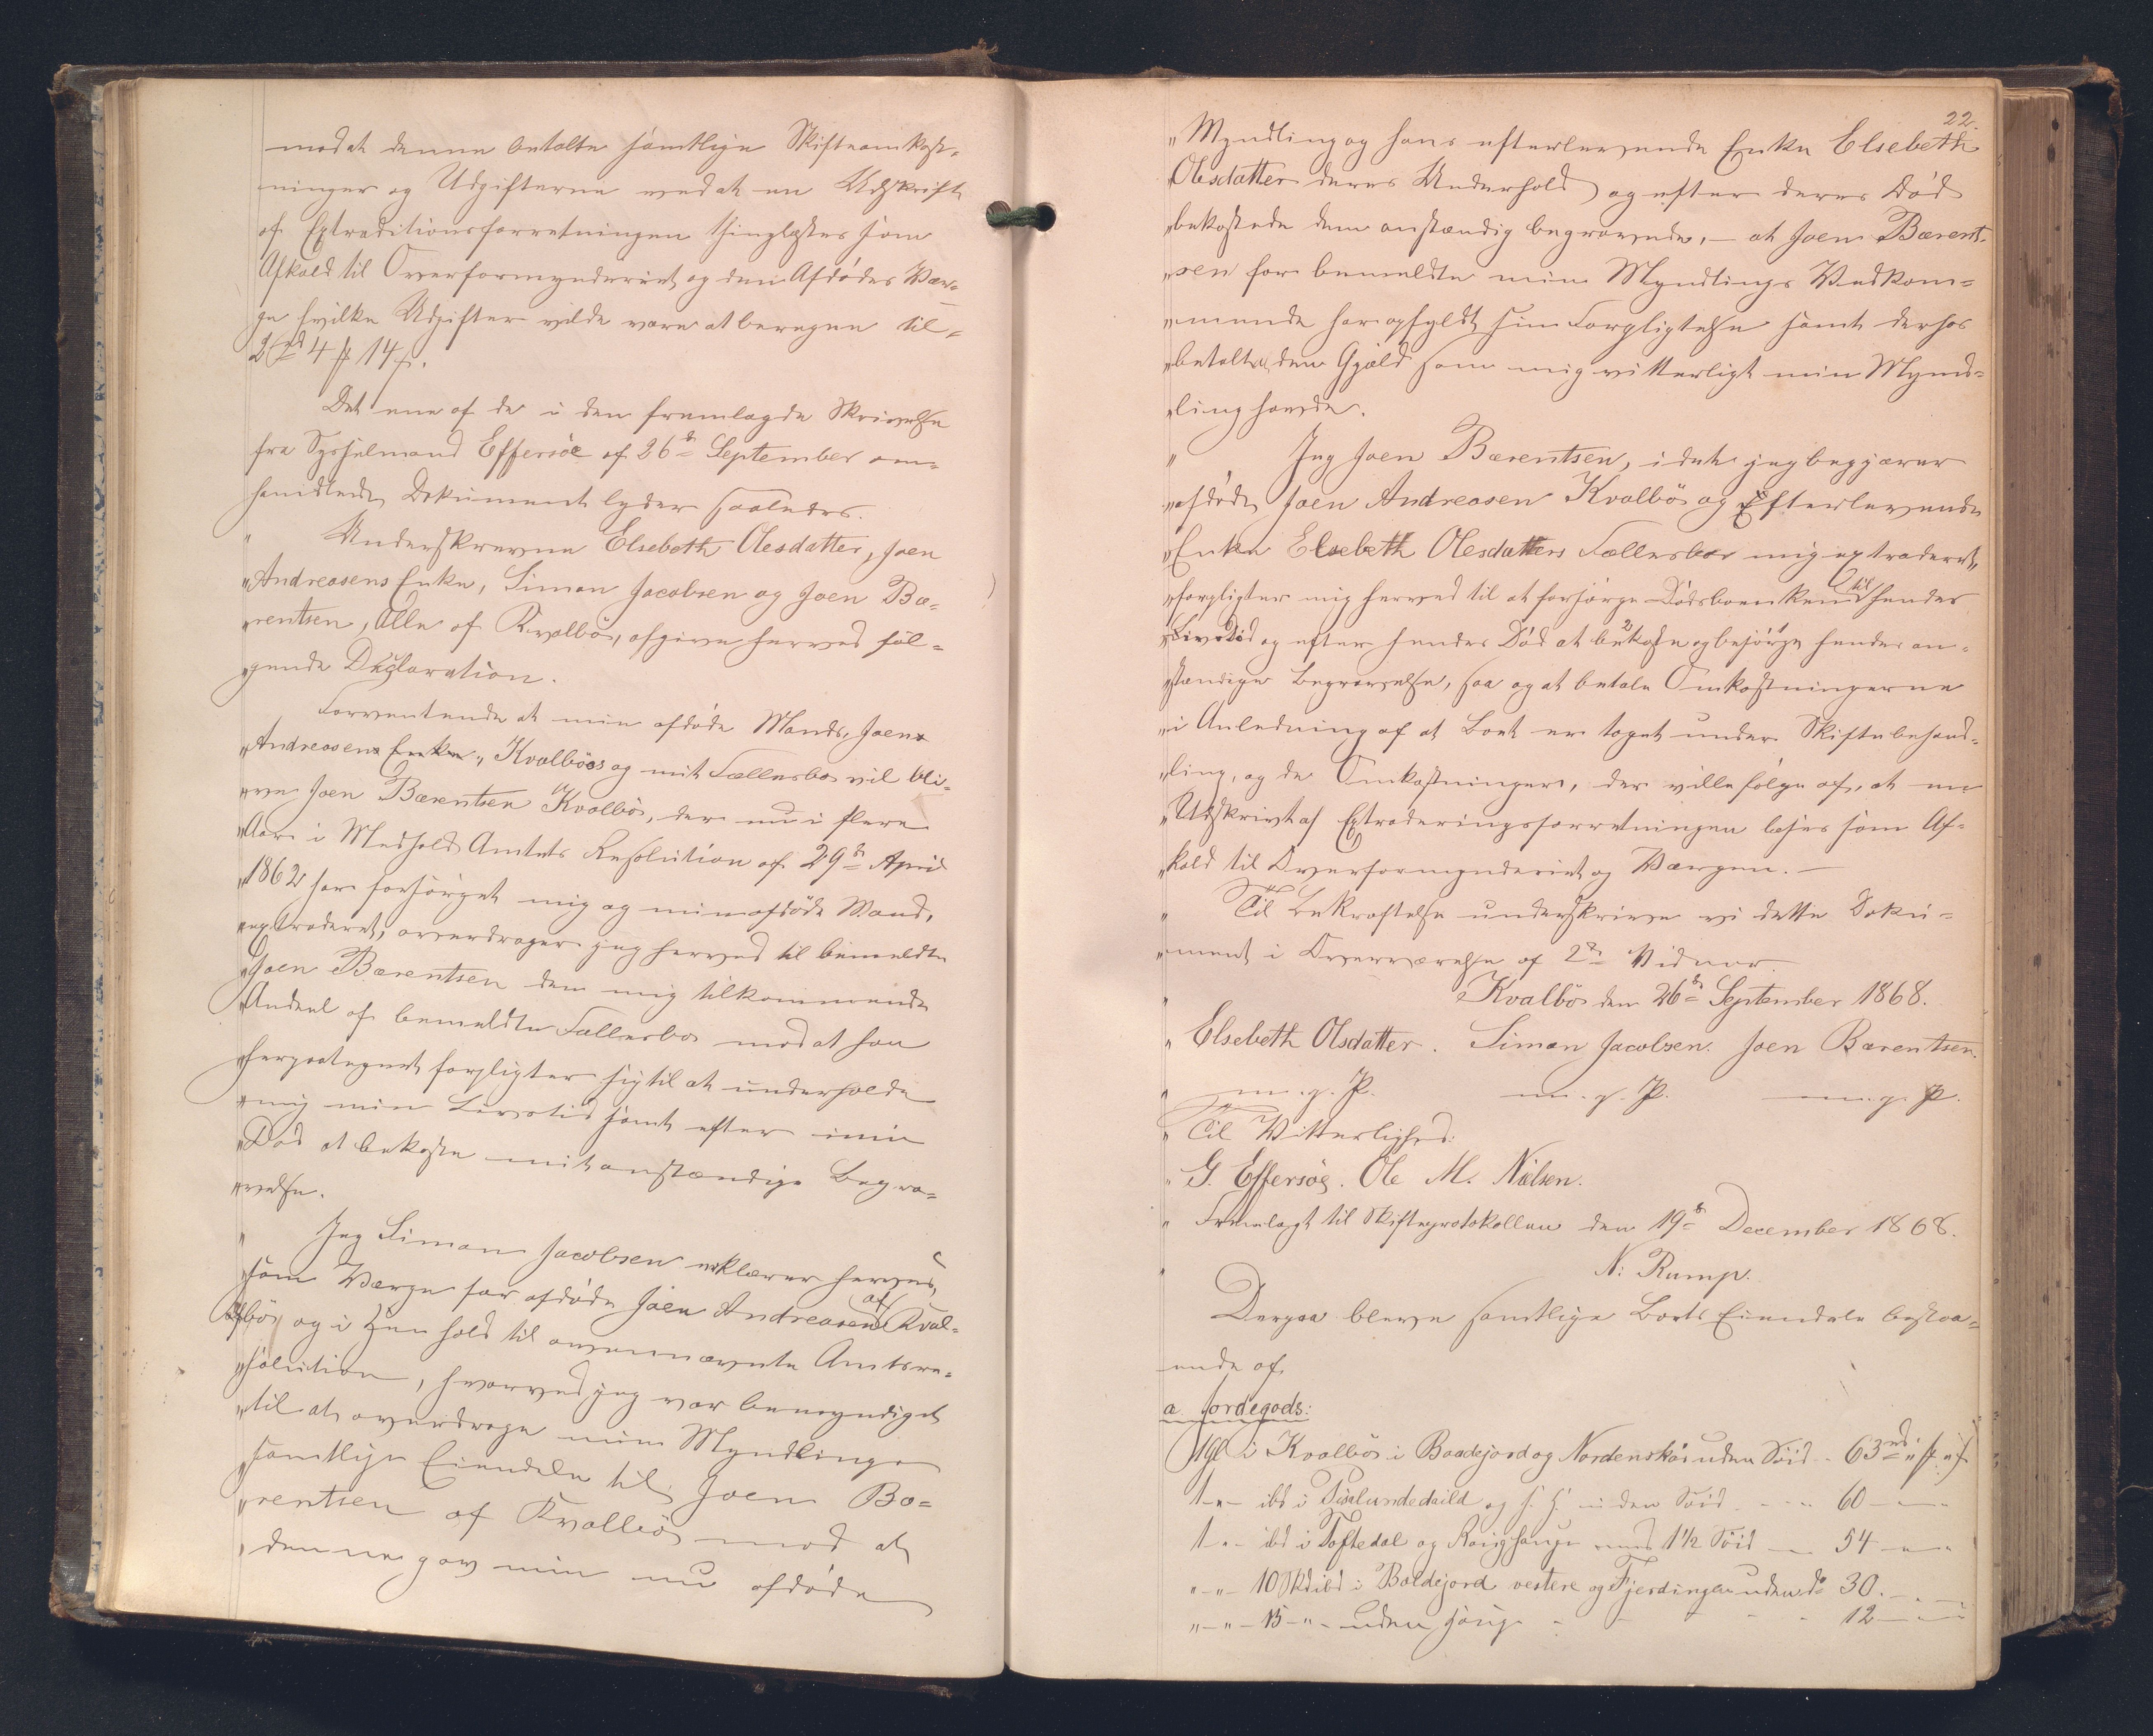 mod at denne betalte samtlige Skifteomkost-
ninger og Udgifterne ved at en Udskrift
af Extraditionsforretningen thinglæstes som
Afkald til Overformynderiet og den Afdødes Vær-
ge hvilke Udgifter vilde være at beregne til
2 rd 4 ß 14 ß.
Det ene af de i den fremlagde Skrivelse
fra Sysselmand Effersöe af 26de September om-
handlede Dokument lyder saaledes.
" Underskrevne Elsebeth Olesdatter, Joen
"Andreasens Enke, Simon Jacobsen og Joen Bæ-
"rentsen, Alle af Kvalbö, afgive herved föl-
"gende Declaration.
Forventende at min afdöde Mands, Joen
"Andreasens Enke, Kvalbös og mit Fællesbo vil bli-
"ve Joen Bærentsen Kvalbö, der nu i flere
"Aar i Medhold Amtets Resolution af 29de April
"1862 har forsörget mig og min afdöde Mand,
"extraderet, overdrager jeg herved til bemeldte
"Joen Bærentsen den mig tilkommende
"Andeel af bemeldte Fællesbo mod at han
"herpaategnet forpligter sig til at underholde
"mig min Livstid samt efter min
"Död at bekoste mit anstændige Begra-
"velse.
" Jeg Simon Jacobsen erklærer herved,
"som Værge for afdöde Joen Andreasen af Kval-
"bö og i Hen hold til ovennævnte Amtsre-
"solution, hvorved jeg var bemyndiget
"til at overdrage min Myndlings
"samtlige Eiendele til Joen Bæ-
"rentsen af Kvalbö mod at
"denne gav min nu afdöde
22.
"Myndling og hans efterlevende Enke Elsebeth
"Olesdatter deres Underhold og efter deres Död
"bekostede dem anstændig begravende, – at Joen Bærent-
"sen for bemeldte min Myndlings Vedkom-
"mende har opfyldt sin Forpligtelse samt derhos
"betalt den Gjæld som mig vitterligt min Mynd-
"ling havde.
" Jeg Joen Bærentsen, idet jeg begjærer
"afdöde Joen Andreasen Kvalbö og Efterlevende
"Enke Elsebeth Olesdatters Fællesbo mig extraderet,
"forpligter mig herved til at forsörge Dödsboenken til hendes
"Livstid og efter hendes Död at bekoste og besörge hendes an-
"stændige Begravelse, saa og at betale Omkostningerne
"i Anledning af at Boet er taget under Skiftebehand-
"ling, og de Omkostninger, der ville fölge af, at en
"Udskrivt af Extraderingsforretningen læses som Af-
"kald til Overformynderiet og Værgen. –
" Til Bekræftelse underskrive vi dette Doku-
"ment i Overværelse af 2de Vidner.
" Kvalbö den 26de September 1868.
" Elsebeth Olsdatter. Simon Jacobsen. Joen Bærentsen.
" m. p. P. m. p. P. m. p. P.
" Til Vitterlighed:
" G. Effersöe. Ole M. Nielsen.
" Fremlagt til Skifteprotokollen den 19de December 1868.
" N. Rump.
Derpaa bleve samtlige Boets Eiendele bestaa-
ende af
a. Jordegods:
1 Gl i Kvalbö i Baadejord og Nordenskåi uden Söid - 63 rd " ß " ß
1 - " - ibd i 60 – " –
1 - " - ibd i Toftedal og med 1½ Söid — 54 – " –
" - " - 10 Skd ibd i Boldejord vestere og Fjerdingen uden do 30. – " –
" - " - 15 - " - uden 12 – " –